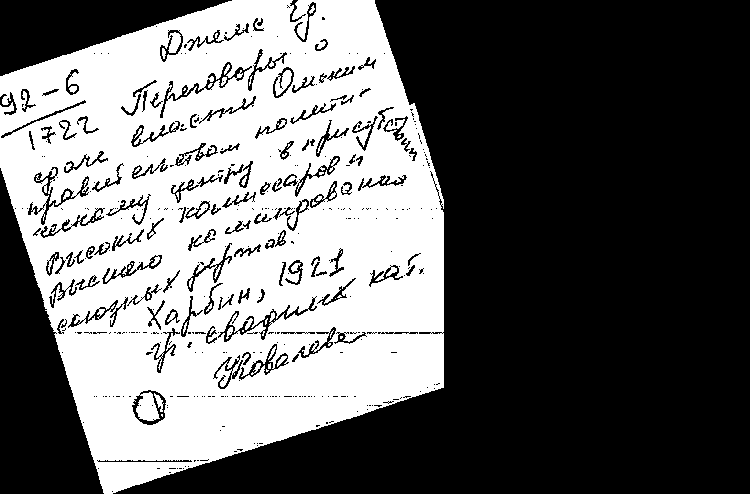 92-6
1722
Джемс Гр.
Переговоры о
сдаче власти Омским
правительством полити-
ческому центру в присутствии
Высоких комиссаров и
Высшего командования
союзных держав.
Харбин, 1921
кат.
Ковалева